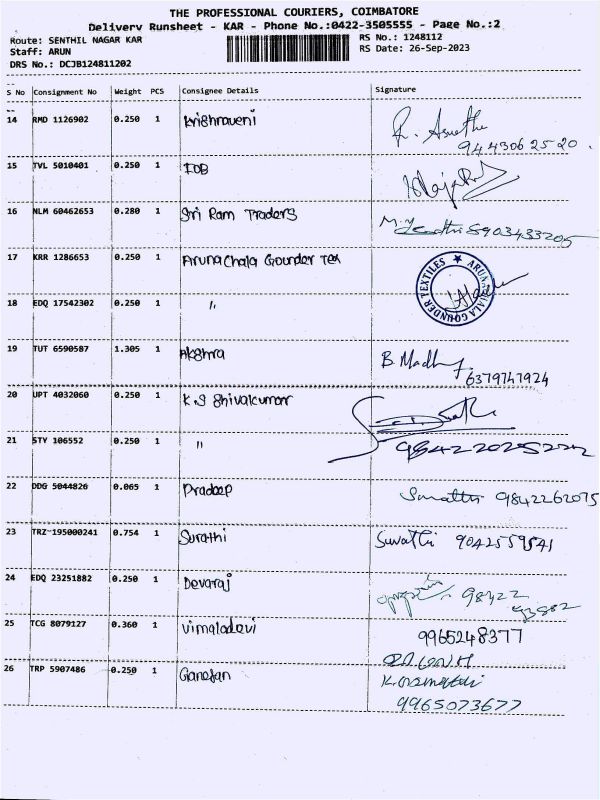 THE PROFESSIONAL COURIERS, COIMBATORE
Delivery Runsheet - KAR - Phone No.:0422-3505555 - Page No.:2
Route: SENTHIL NAGAR KAR
RS No.: 1248112
Staff: ARUN
RS Date: 26-Sep-2023
DRS No.: DCJB124811202
S No Consignment No Weight PCS Consignee Details Signature
14 RMD 1126902 0.250 1 Krishnaveni
9443062520
15 TVL 5010401 0.250 1 IOB
16 NLM 60462653 0.280 1 Sri Ram Traders
8903433205
17 KRR 1286653 0.250 1 Arunachala Gounder Tex
ARUNACHALA GOUNDER TEXTILES
18 EDQ 17542302 0.250 1 "
19 TUT 6590587 1.305 1 Akshra
B. Madhu
6379747924
20 UPT 4032060 0.250 1 K.S Shivakumar
21 STY 106552 0.250 1 "
22 DDG 5044826 0.065 1 Pradeep
9842262075
23 TRZ 195000241 0.754 1 Surathi
Suvathi 9042559541
24 EDQ 23251882 0.250 1 Devaraj
98422
25 TCG 8079127 0.360 1 Vimaladevi
9965248377
26 TRP 5907486 0.250 1 Ganesan
9965073677